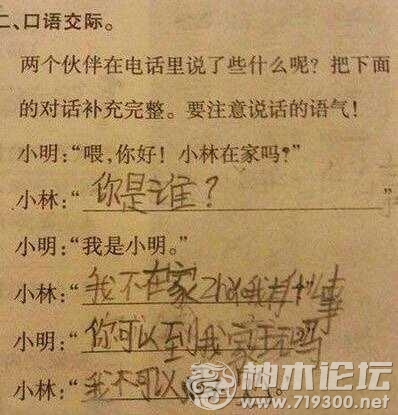 二、口语交际。
两个伙伴在电话里说了些什么呢？把下面
的对话补充完整。要注意说话的语气！
小明：“喂，你好！小林在家吗？”
小林：“你是谁？”
小明：“我是小明。”
小林：“我不在家 你找我有什么事
小明：“你可以到我家玩吗
小林：“我不可以
神木论坛
www.719300.net